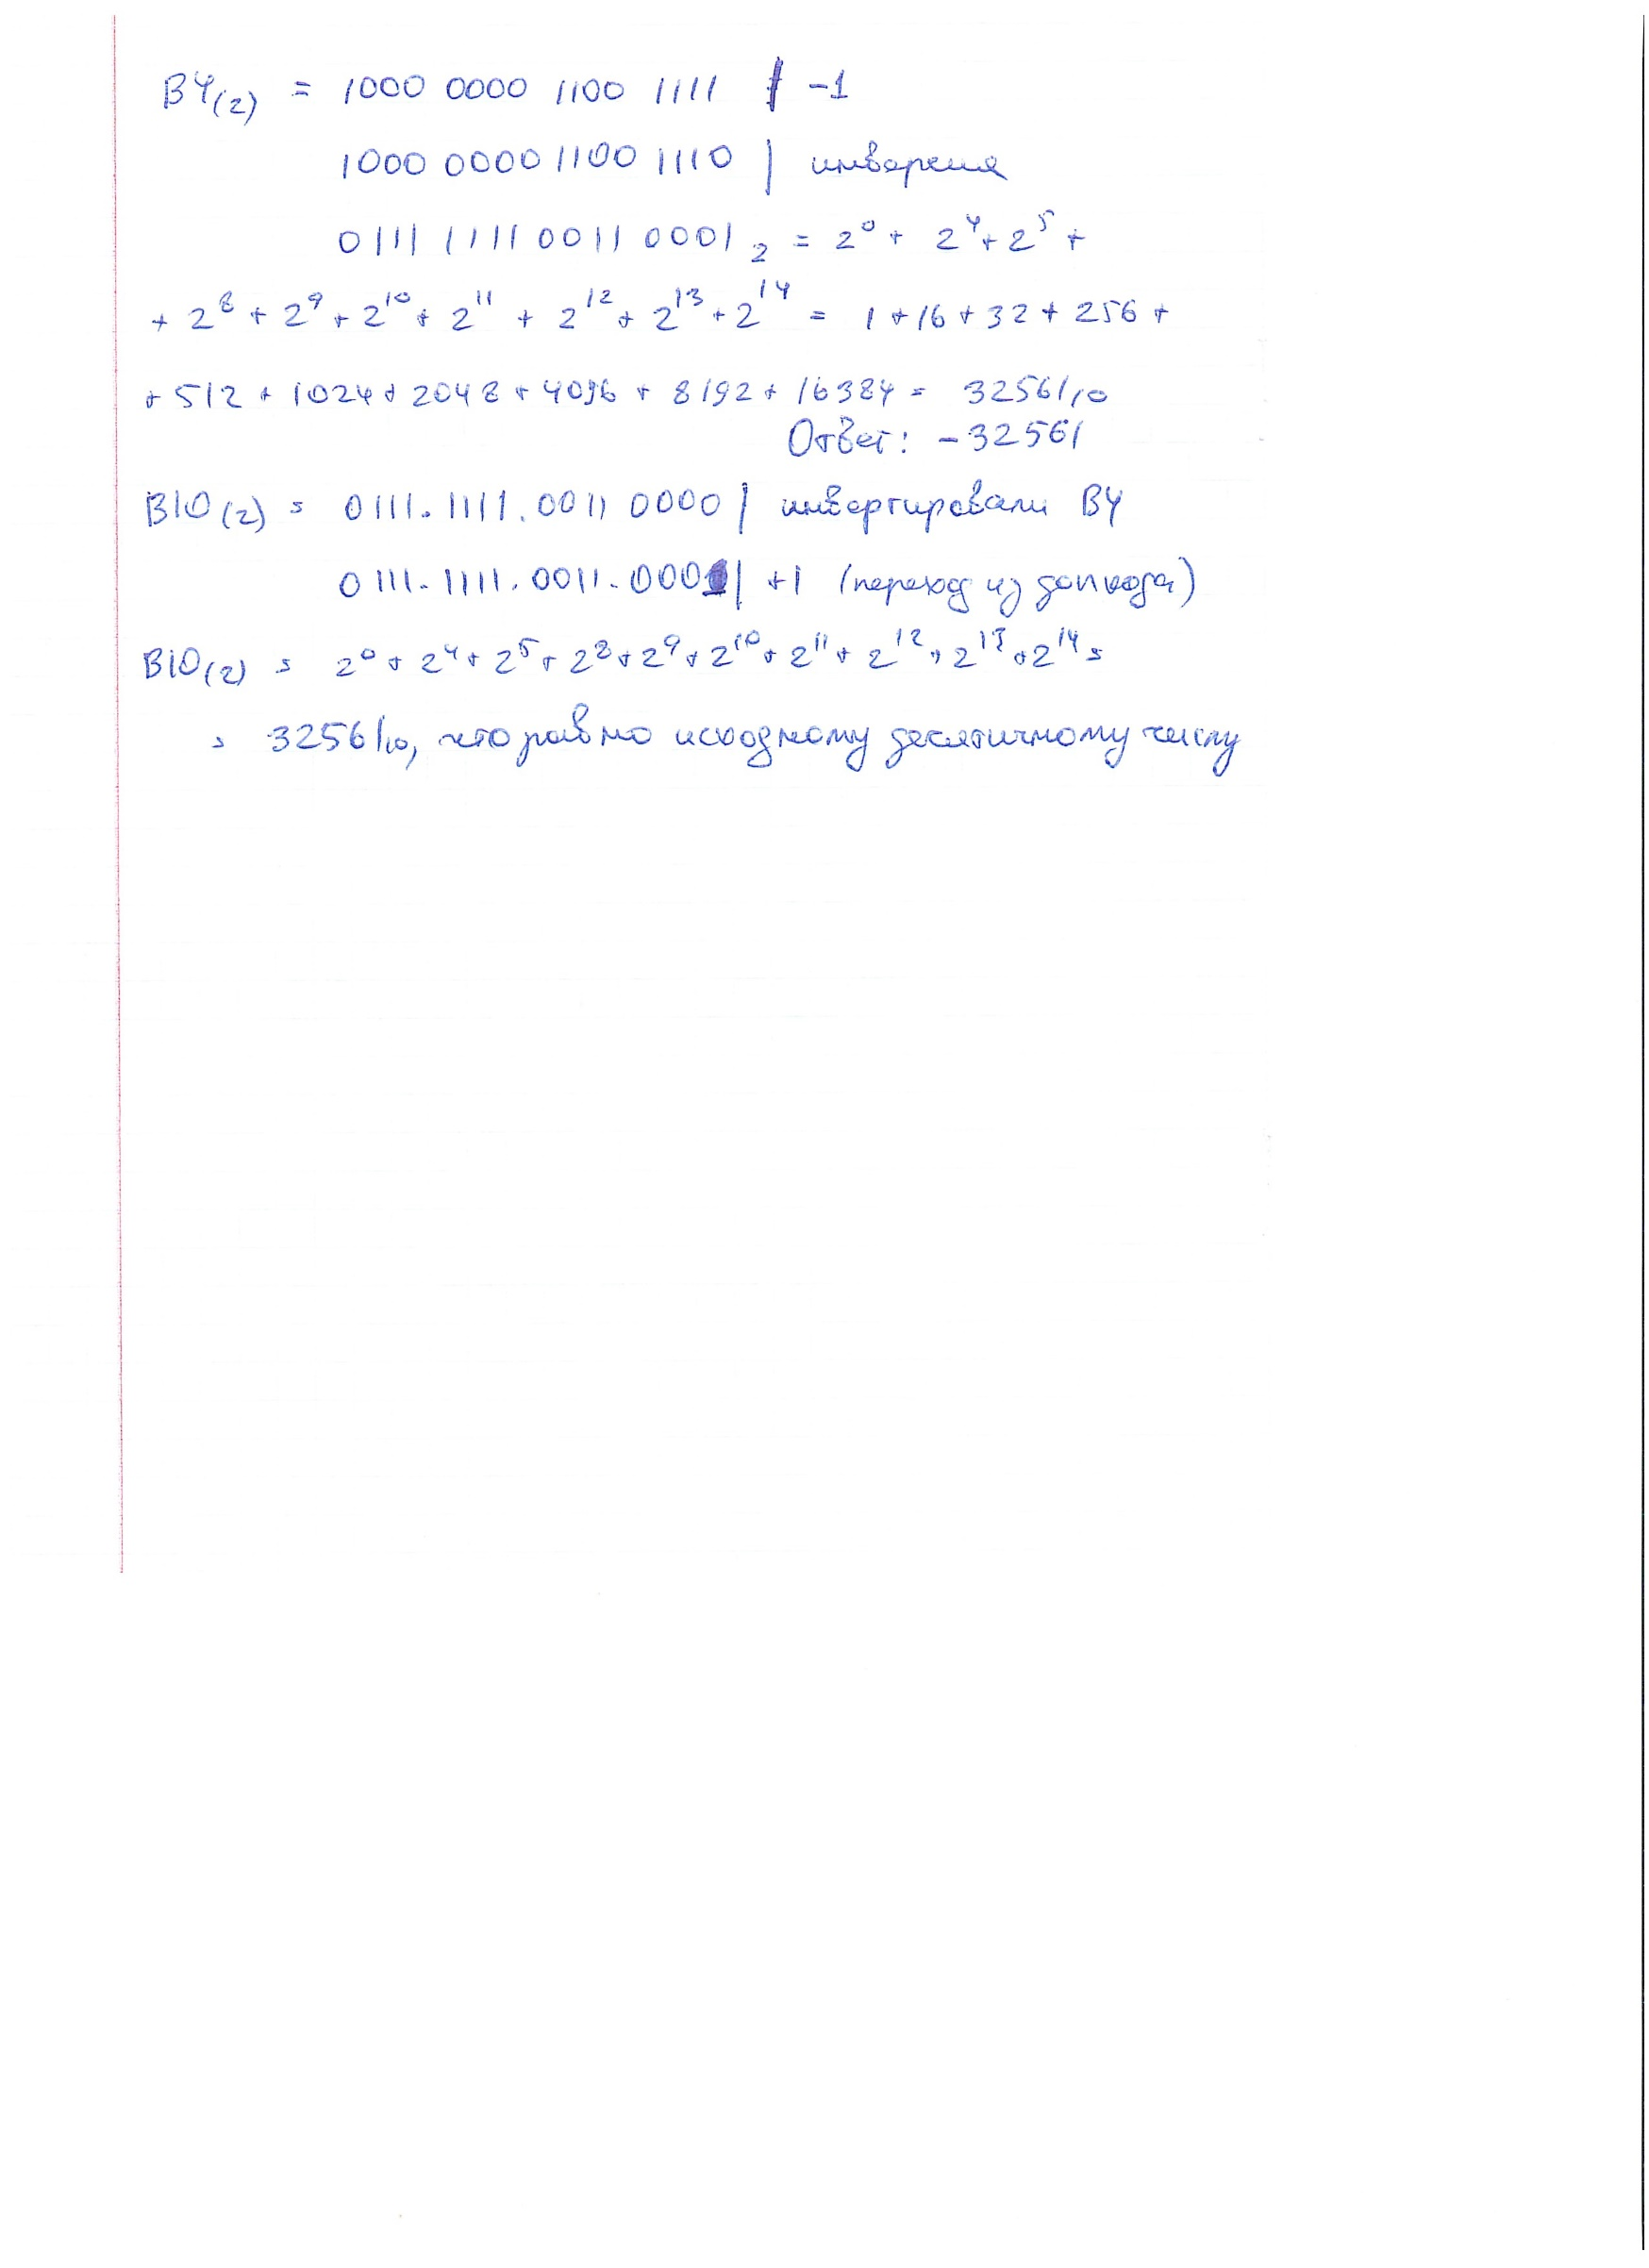 B4(2) = 1000 0000 1100 1111 | -1
1000 0000 1100 1110 | инверсия
0111 1111 0011 0001₂ = 2⁰ + 2⁴ + 2⁵ +
+ 2⁸ + 2⁹ + 2¹⁰ + 2¹¹ + 2¹² + 2¹³ + 2¹⁴ = 1 + 16 + 32 + 256 +
+ 512 + 1024 + 2048 + 4096 + 8192 + 16384 = 32561₁₀
Ответ: -32561
B10(2) = 0111.1111.0011 0000 | инвертировали B4
0111.1111.0011.0001 | +1 (переход из допкода)
B10(2) = 2⁰ + 2⁴ + 2⁵ + 2⁸ + 2⁹ + 2¹⁰ + 2¹¹ + 2¹² + 2¹³ + 2¹⁴ =
= 32561₁₀, что равно исходному десятичному числу